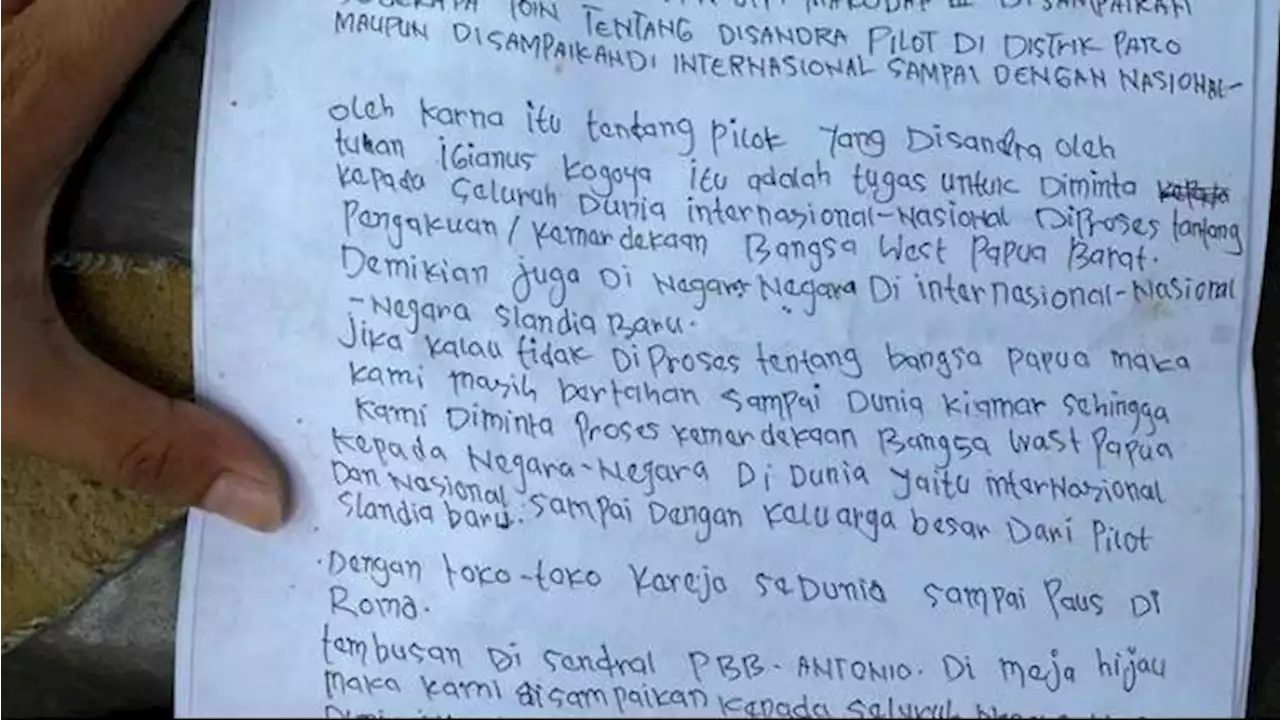 TENTANG DISANDRA PILOT DI DISTRIK PARO
MAUPUN DISAMPAIKANDI INTERNASIONAL SAMPAI DENGAN NASIONAL-
oleh karna itu tentang pilot yang Disandra oleh
tuhan iGianus Kogoya itu adalah tugas untuk Diminta
kepada Seluruh Dunia internasional-Nasional DiProses tantang
Pangakuan/kamardekaan Bangsa West Papua Barat.
Demikian juga Di Negara-Negara Di internasional-Nasional
-Negara Slandia Baru.
Jika kalau tidak DiProses tentang bangsa Papua maka
kami masih bertahan sampai Dunia kiamar sehingga
kami Diminta Proses kemardekaan Bangsa Wast Papua
Kepada Negara-Negara Di Dunia yaitu interNazional
Dan Nasional
Slandia baru. Sampai Dengan Keluarga besar Dari Pilot
.Dengan toko-toko Kareja seDunia sampai Paus Di
Roma.
tambusan Di sandral PBB-ANTONIO. Di meja hijau
maka kami disampaikan kepada seluruh